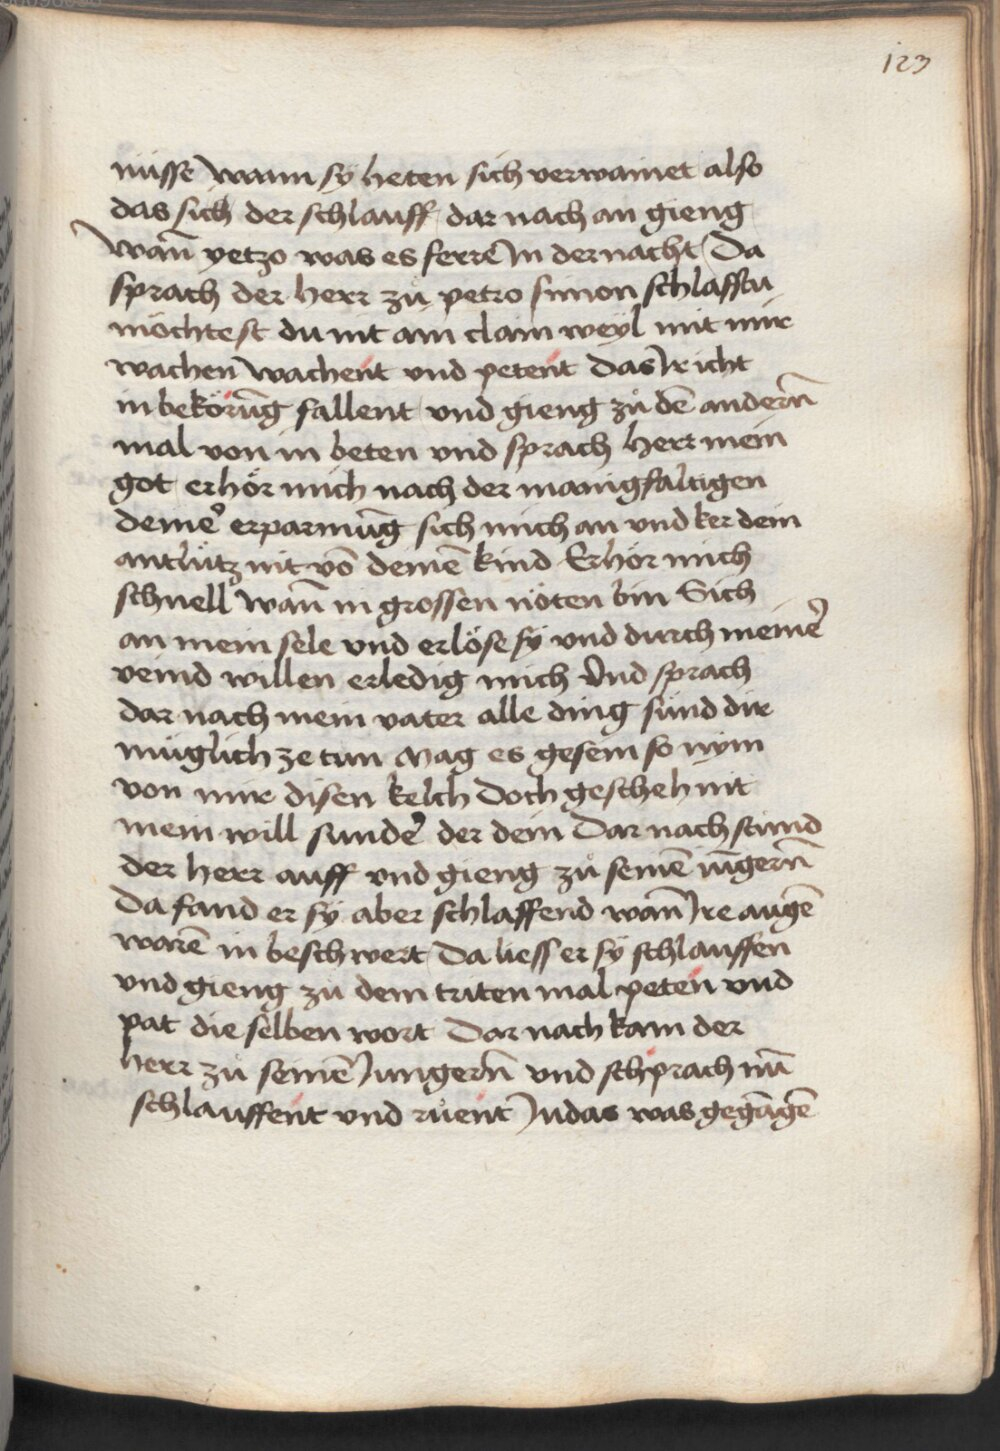 123
nüsse wann sÿ heten sich verwainet also
das sich der schlauff dar nach an gieng
wan̄ yetzo was es ferre Jn der nacht Da
sprach der herr zů petro simon schlaffstu
möchtest du nit ain clain weyl mit mir
wachen wachent vnd petent das Jr icht
in bekörūg fallent vnd gieng zů dē andern̄
mal von in beten vnd sprach herr mein
got erhör mich nach der manigfaltigen
deine᷒ erparmūg sich mich an vnd ker dein
antlütz nit vō deinē kind Erhör mich
schnell wan̄ in grossen nöten bin Sich
an mein sele vnd erlöse sÿ vnd durch meine᷒
veind willen erledig mich Vnd sprach
dar nach mein vater alle ding sünd dir
müglich ze tun Mag es gesein so nÿm
von mir disen kelch doch gescheh nit
mein will sunde᷒ der dein Dar nach stund
der herr auff vnd gieng zů seinē iūgern̄
Da fand er sÿ aber schlaffend wan̄ Jre augē
warē in beschwert Da liess er sÿ schlauffen
vnd gieng zů dem triten mal peten vnd
pat die selben wort Dar nach kam der
herr zů seinē Jungern̄ vnd schprach nū
schlauffent vnd růent Judas was gegāgē